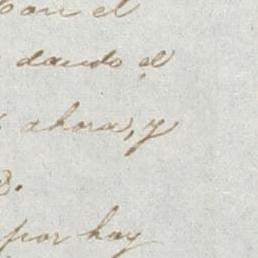 con el
dando el
ahora, y
por hay